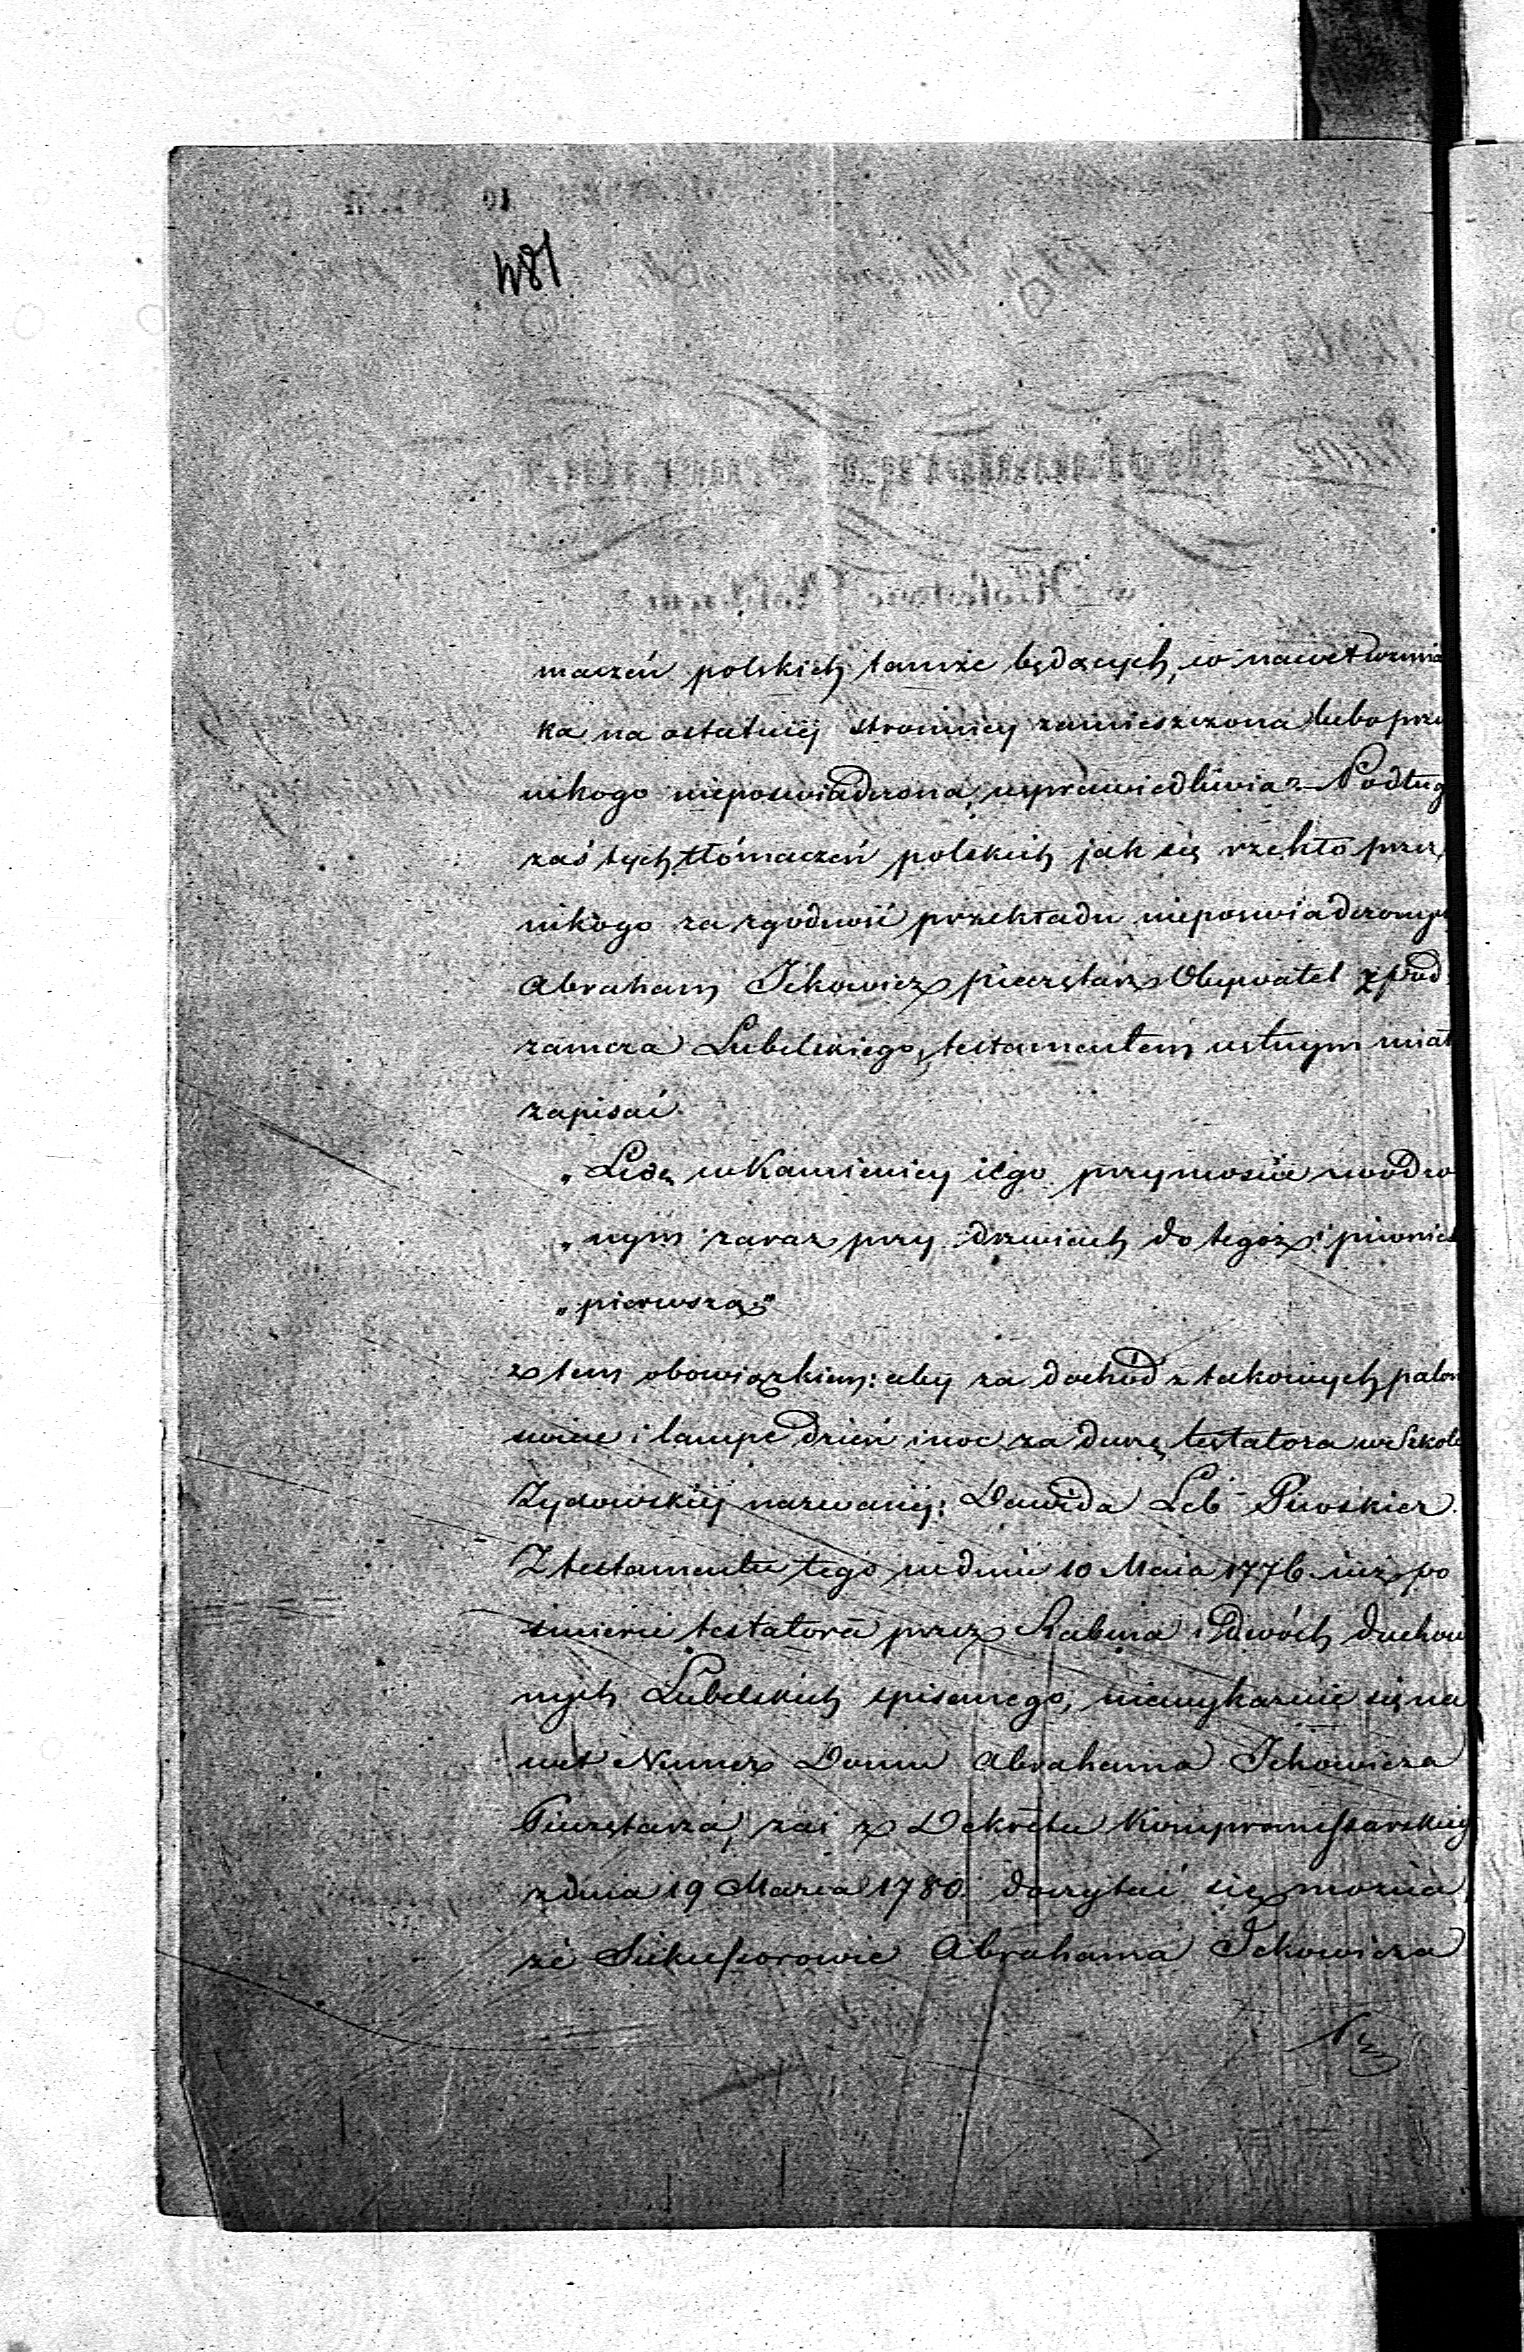 181
maczeń polskich tamże będących, co nawet wzmia
ka na ostatniej stronnicy zamieszczona lubo prze
nikogo niepoświadczona, usprawiedliwia. Podług
zaś tych tłómaczeń polskich jak się rzekło przez
nikogo za zgodność przekładu niepoświadczonych
Abraham Ickowicz pieczętarz Obywatel z pod
zamcza Lubelskiego, testamentem ustnym miał
zapisać
„ w Kamienicy iego przymoście zwodzo
„nym zaraz przy drzwiach do tegoż i piwnicę
„pierwszą"
z tem obowiązkiem: aby za dochód z takowych palon
świece i lampę dzień i noc za duszę testatora w Szkole
Żydowskiej nazwanej: Dawida Leb
Z testamentu tego w dniu 10 Maia 1776 już po
śmierci testatora przez Rabina i Dwóch duchow
nych Lubelskich spisanego, niewykazuie się na
wet Numer Domu Abrahama Ickowicza
Pieczętarza, zaś z Dekretu Kompromissarskieg
z dnia 19 Marca 1780 doczytać się można
że Sukcessorowie Abrahama Ickowicza